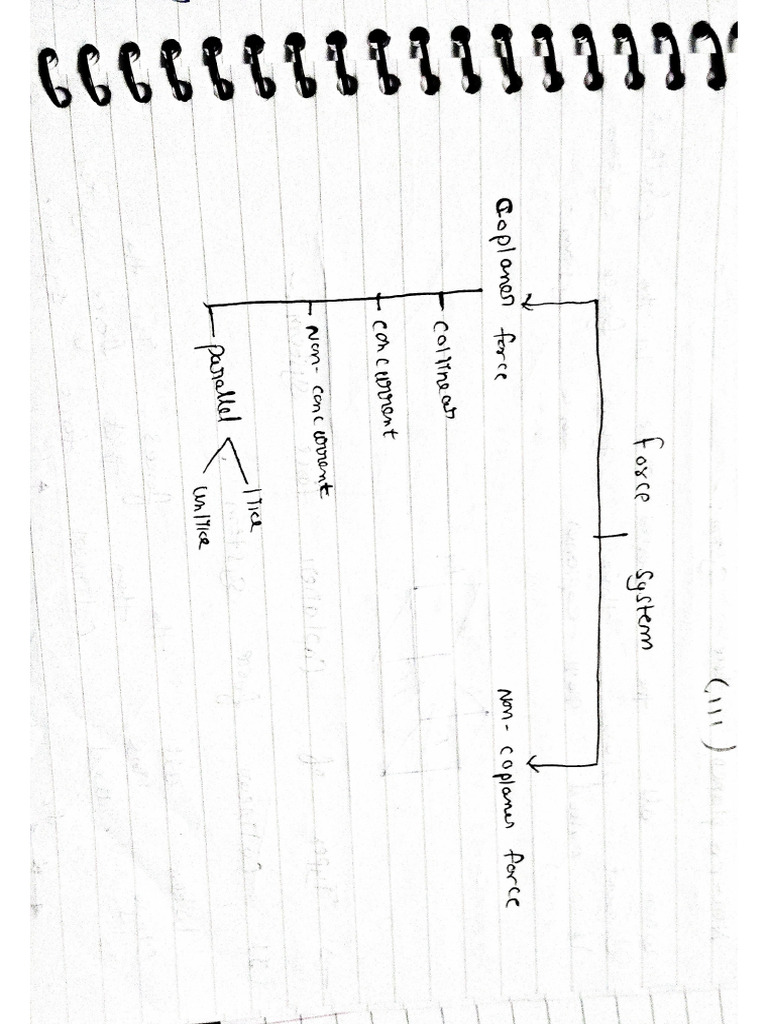 (111)
Force system
Coplaner force
Non-coplaner force
Collinear
Concurrent
Non-concurrent
Parallel
like
unlike